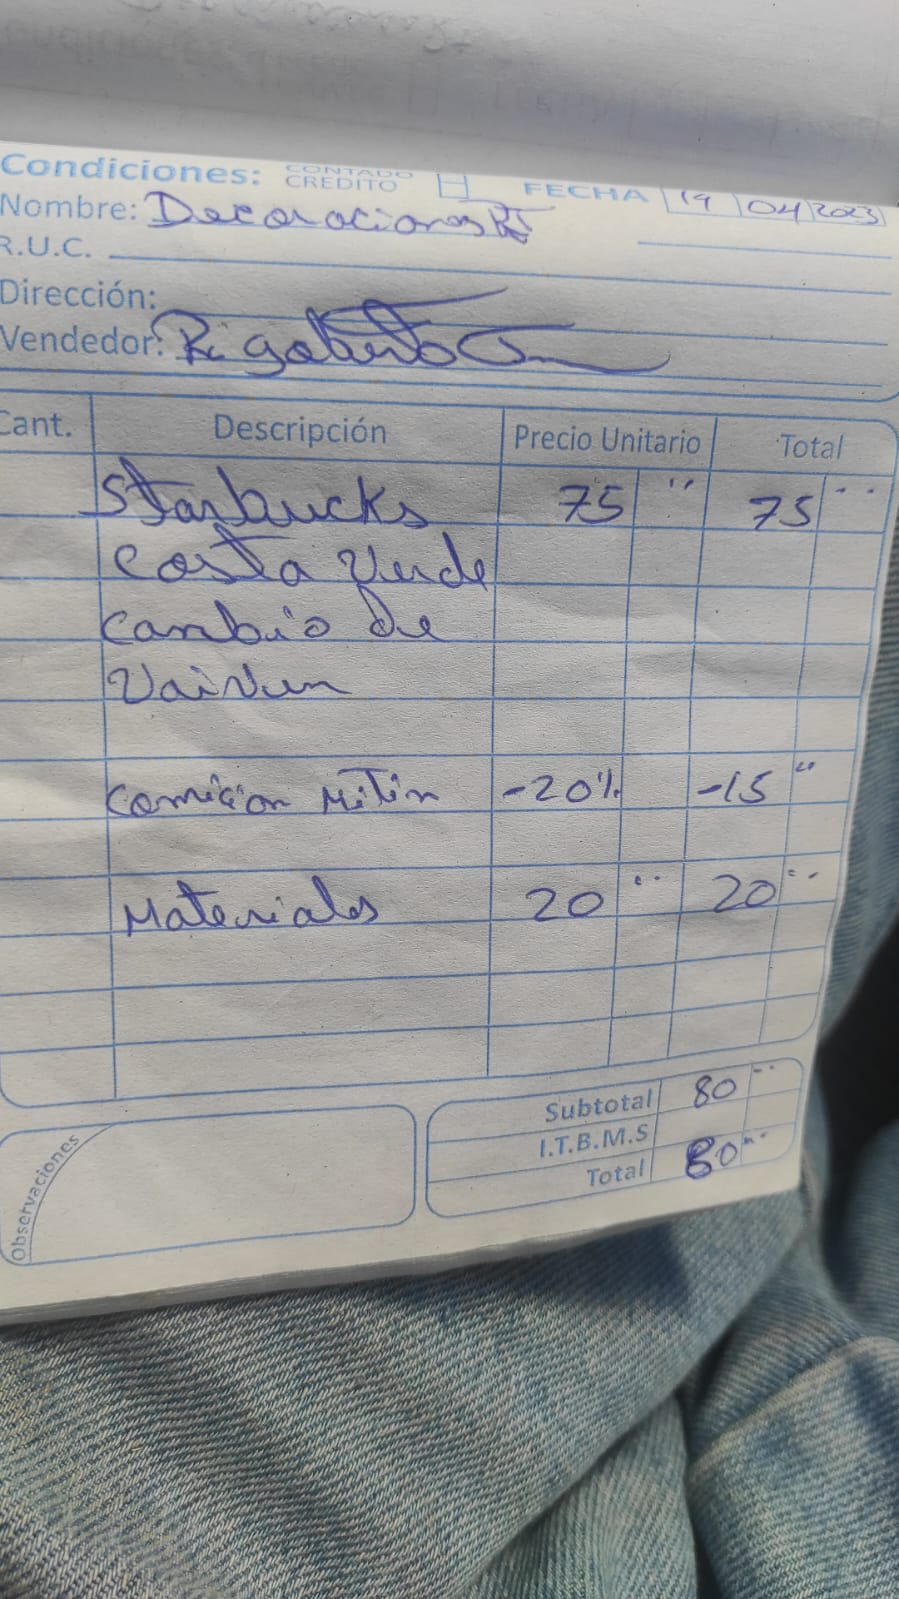 Condiciones: CONTADO CREDITO FECHA 19 04 2023
Nombre: Decoraciones
R.U.C.
Dirección:
Vendedor: Rigoberto
Cant. Descripción Precio Unitario Total
Starbucks 75 '' 75 --
Costa Verde
Cambio de
Vaivun
Comicion Mitin -20% -15 ''
Materiales 20 -- 20 --
Subtotal 80 --
I.T.B.M.S
Total 80 --
Observaciones